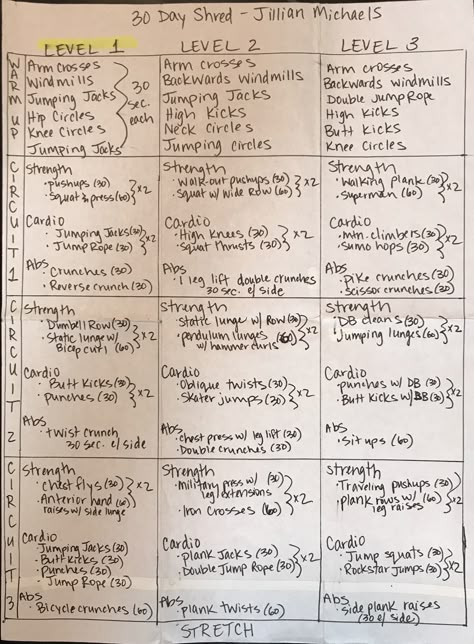 30 Day Shred - Jillian Michaels
LEVEL 1
LEVEL 2
LEVEL 3
WARM UP
Arm Crosses
Windmills
Jumping Jacks
Hip Circles
Knee Circles
Jumping Jacks
30 sec. each
Arm crosses
Backwards windmills
Jumping Jacks
High Kicks
Neck Circles
Jumping circles
Arm crosses
Backwards windmills
Double Jump Rope
High Kicks
Butt Kicks
Knee Circles
CIRCUIT 1
Strength
• pushups (30)
• Squat & press (60)
x2
Cardio
• Jumping Jacks (30)
• Jump Rope (30)
x2
Abs
• Crunches (30)
• Reverse crunch (30)
Strength
• Walk-out pushups (30)
• squat w/ Wide Row (60)
x2
Cardio
• High Knees (30)
• squat thrusts (30)
x2
Abs
• 1 leg lift double crunches
30 sec. e/ side
Strength
• Walking plank (30)
• superman (60)
x2
Cardio
• mtn. climbers (30)
• Sumo hops (30)
x2
Abs
• Pike crunches (30)
• scissor crunches (30)
CIRCUIT 2
Strength
• Dumbell Row (30)
• Static lunge w/
Bicep curl (60)
x2
Cardio
• Butt Kicks (30)
• punches (30)
x2
Abs
• twist crunch
30 sec. e/ side
Strength
• static lunge w/ Row (30)
• pendulum lunges (60)
w/ hammer curls
x2
Cardio
• Oblique twists (30)
• Skater jumps (30)
x2
Abs
• chest press w/ leg lift (30)
• Double crunches (30)
Strength
• DB cleans (30)
• Jumping lunges (60)
x2
Cardio
• punches w/ DB (30)
• Butt Kicks w/ DB (30)
x2
Abs
• Sit ups (60)
CIRCUIT 3
Strength
• chest flys (30)
• Anterior hand (60)
raises w/ side lunge
x2
Cardio
• Jumping Jacks (30)
• Butt Kicks (30)
• Punches (30)
• Jump Rope (30)
Abs
• Bicycle crunches (60)
Strength
• military press w/ (30)
leg extensions
• Iron Crosses (60)
x2
Cardio
• Plank Jacks (30)
• Double Jump Rope (30)
x2
Abs
• Plank twists (60)
Strength
• Traveling pushups (30)
• plank rows w/ (60)
leg raises
x2
Cardio
• Jump squats (30)
• Rockstar Jumps (30)
x2
Abs
• side plank raises
(30 e/ side)
STRETCH